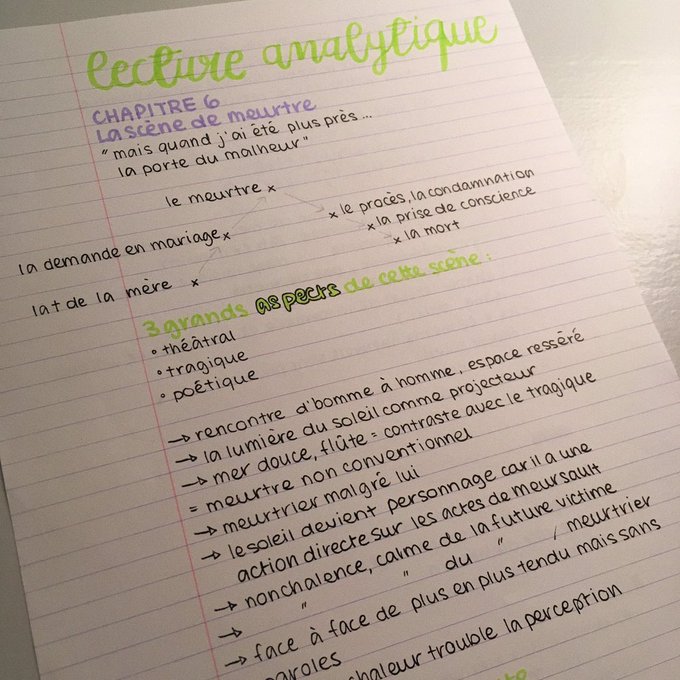 lecture analytique
CHAPITRE 6
La scène de meurtre
" mais quand j'ai été plus près ...
la porte du malheur "
le meurtre x
x le procès, la condamnation
x la prise de conscience
x la mort
la demande en mariage x
la † de la mère x
3 grands aspects de cette scène :
• théâtral
• tragique
• poétique
→ rencontre d'homme à homme, espace resséré
→ la lumière du soleil comme projecteur
→ mer douce, flûte = contraste avec le tragique
= meurtre non conventionnel
→ meurtrier malgré lui
→ le soleil devient personnage car il a une
action directe sur les actes de meursault
→ nonchalence, calme de la future victime
→ " " du " / meurtrier
→ face à face de plus en plus tendu mais sans
paroles
chaleur trouble la perception